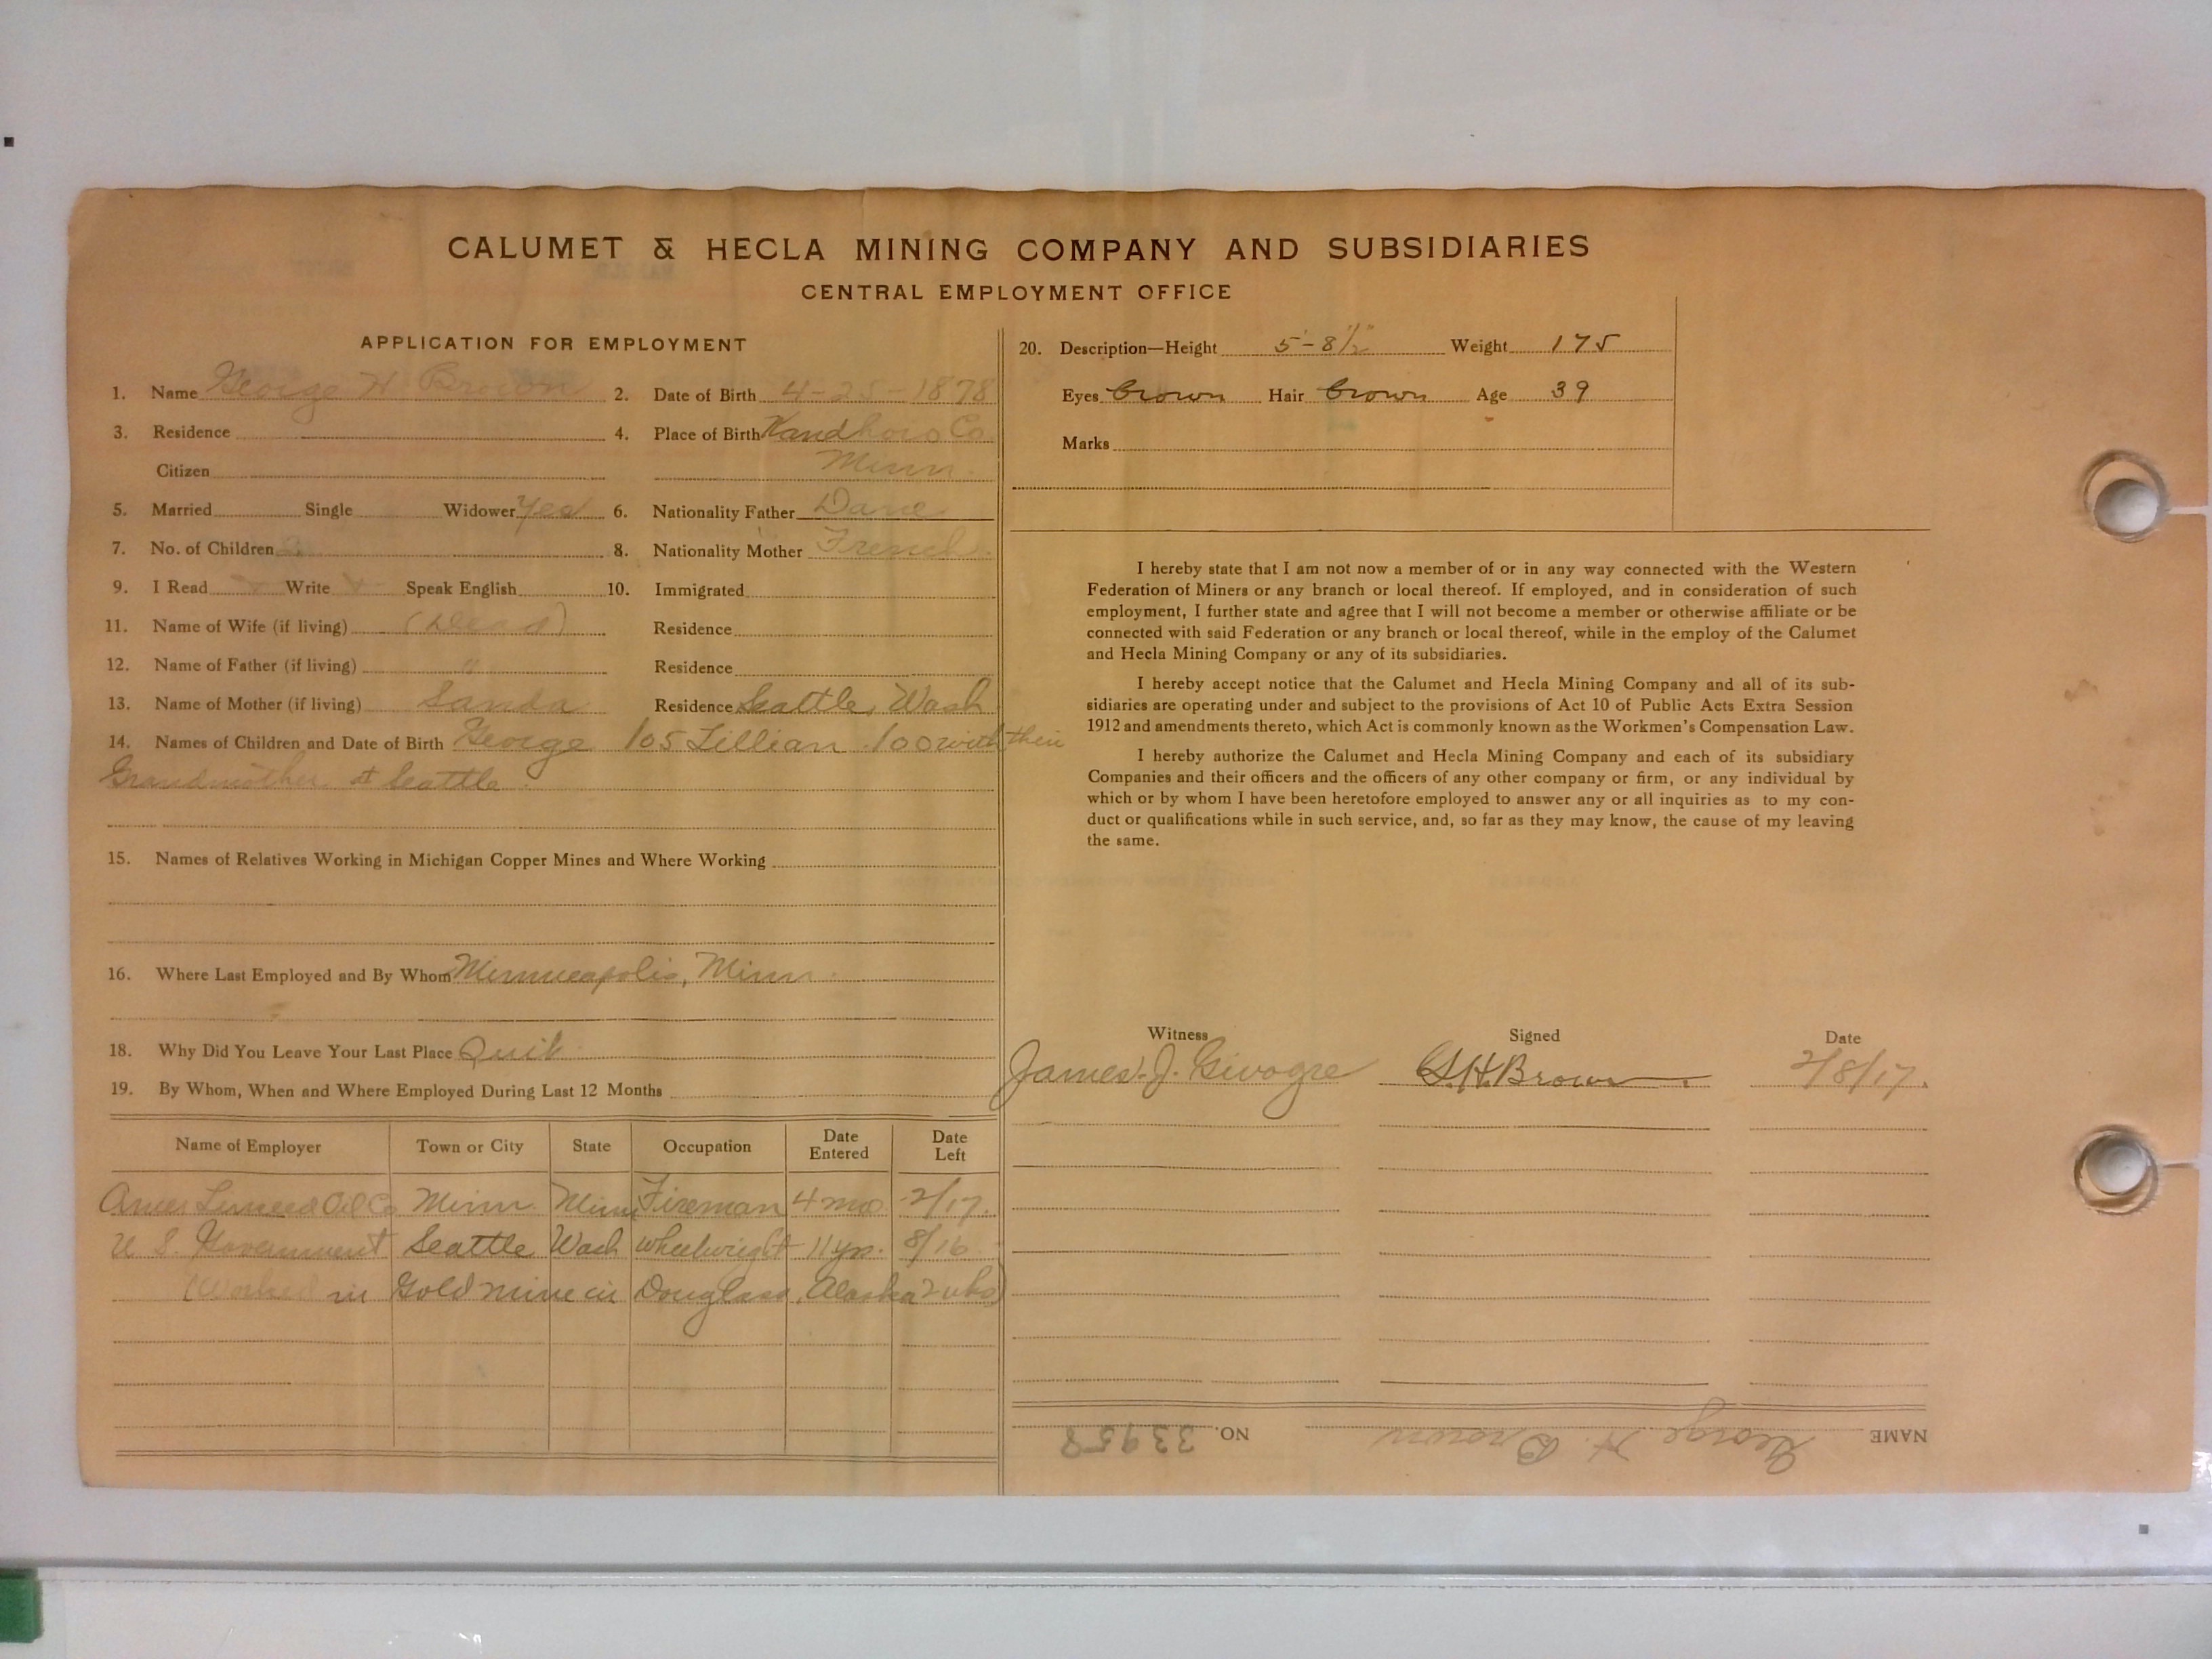 CALUMET & HECLA MINING COMPANY AND SUBSIDIARIES
CENTRAL EMPLOYMENT OFFICE
APPLICATION FOR EMPLOYMENT
1. Name George H Brown 2. Date of Birth 4-25-1878
3. Residence 4. Place of Birth Co.
Citizen Minn.
5. Married Single Widower Yes 6. Nationality Father Dane
7. No. of Children 8. Nationality Mother French
9. I Read Write Speak English 10. Immigrated
11. Name of Wife (if living) (Dead) Residence
12. Name of Father (if living) " Residence
13. Name of Mother (if living) Sanda Residence Seattle, Wash
14. Names of Children and Date of Birth George /05 Lillian /00 with their
Grandmother at Seattle.
15. Names of Relatives Working in Michigan Copper Mines and Where Working
16. Where Last Employed and By Whom Minneapolis, Minn.
18. Why Did You Leave Your Last Place Quit
19. By Whom, When and Where Employed During Last 12 Months
Name of Employer Town or City State Occupation Date Entered Date Left
Amer Linseed Oil Co Minn. Minn Fireman 4 mo 2/17.
U S. Government Seattle Wash wheelwright 11 yrs. 8/16
(Worked in Gold mine in Douglass, Alaska 2 wks)
20. Description—Height 5'-8½" Weight 175
Eyes brown Hair brown Age 39
Marks
I hereby state that I am not now a member of or in any way connected with the Western
Federation of Miners or any branch or local thereof. If employed, and in consideration of such
employment, I further state and agree that I will not become a member or otherwise affiliate or be
connected with said Federation or any branch or local thereof, while in the employ of the Calumet
and Hecla Mining Company or any of its subsidiaries.
I hereby accept notice that the Calumet and Hecla Mining Company and all of its sub-
sidiaries are operating under and subject to the provisions of Act 10 of Public Acts Extra Session
1912 and amendments thereto, which Act is commonly known as the Workmen's Compensation Law.
I hereby authorize the Calumet and Hecla Mining Company and each of its subsidiary
Companies and their officers and the officers of any other company or firm, or any individual by
which or by whom I have been heretofore employed to answer any or all inquiries as to my con-
duct or qualifications while in such service, and, so far as they may know, the cause of my leaving
the same.
Witness Signed Date
James J. Givogre G.H. Brown 2/8/17.
NAME George H. Brown NO. 33958